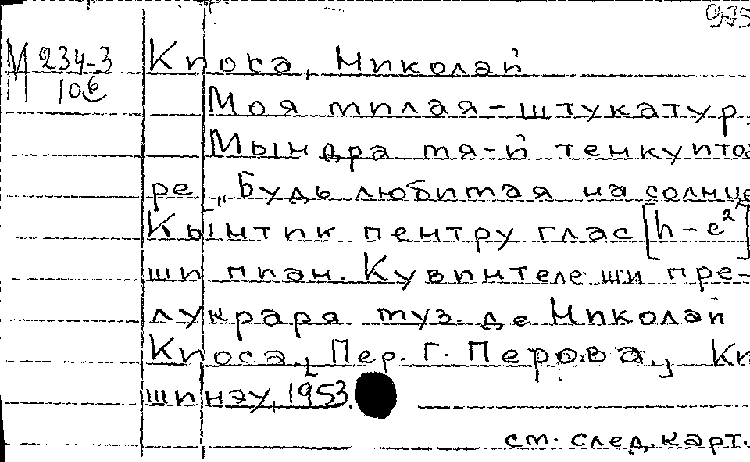 975
М 234-3
10б
Киоса, Николай
Моя милая-штукатур.
Мындра мя-й тенкуито-
ре. „Будь любимая на солнце
Кынтик пентру глас [h-e²]
ши пиан. Кувинтеле ши пре-
лукраря муз. де Николай
Киоса, Пер. Г. Перова., Ки
шинэу, 1953.
см. след. карт.